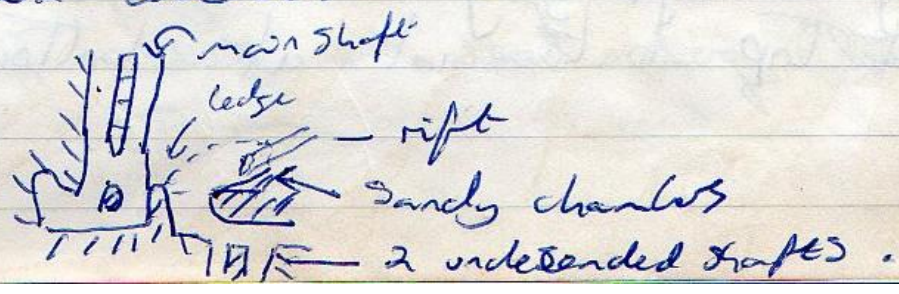 main shaft
ledge
rift
Sandy chambers
2 undescended shafts.